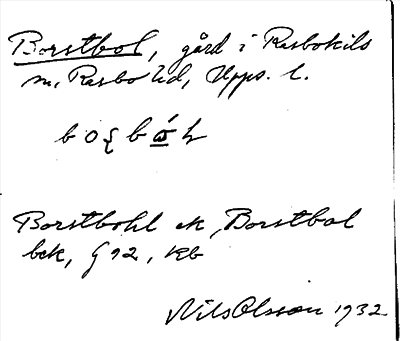 Borstbol, gård i Rasbokils
sn, Rasbo hd, Upps. l.
Borstbohl ek, Borstbol
bek, G 92, Kb
Nils Olsson 1932